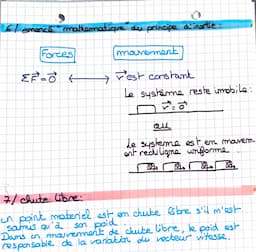 6/ énoncé "mathématique" du principe d'inertie:
Forces
mouvement
ΣF⃗ = 0⃗ ⟷ v⃗ est constant
Le système reste imobile:
v⃗ = 0⃗
ou
Le système est en mouvem-
ent rectiligne uniforme
7/ chute libre:
un point materiel est en chute libre s'il n'est
samus qu'à son poid.
Dans un mouvement de chute libre, le poid est
responsable de la variation du vecteur vitesse.